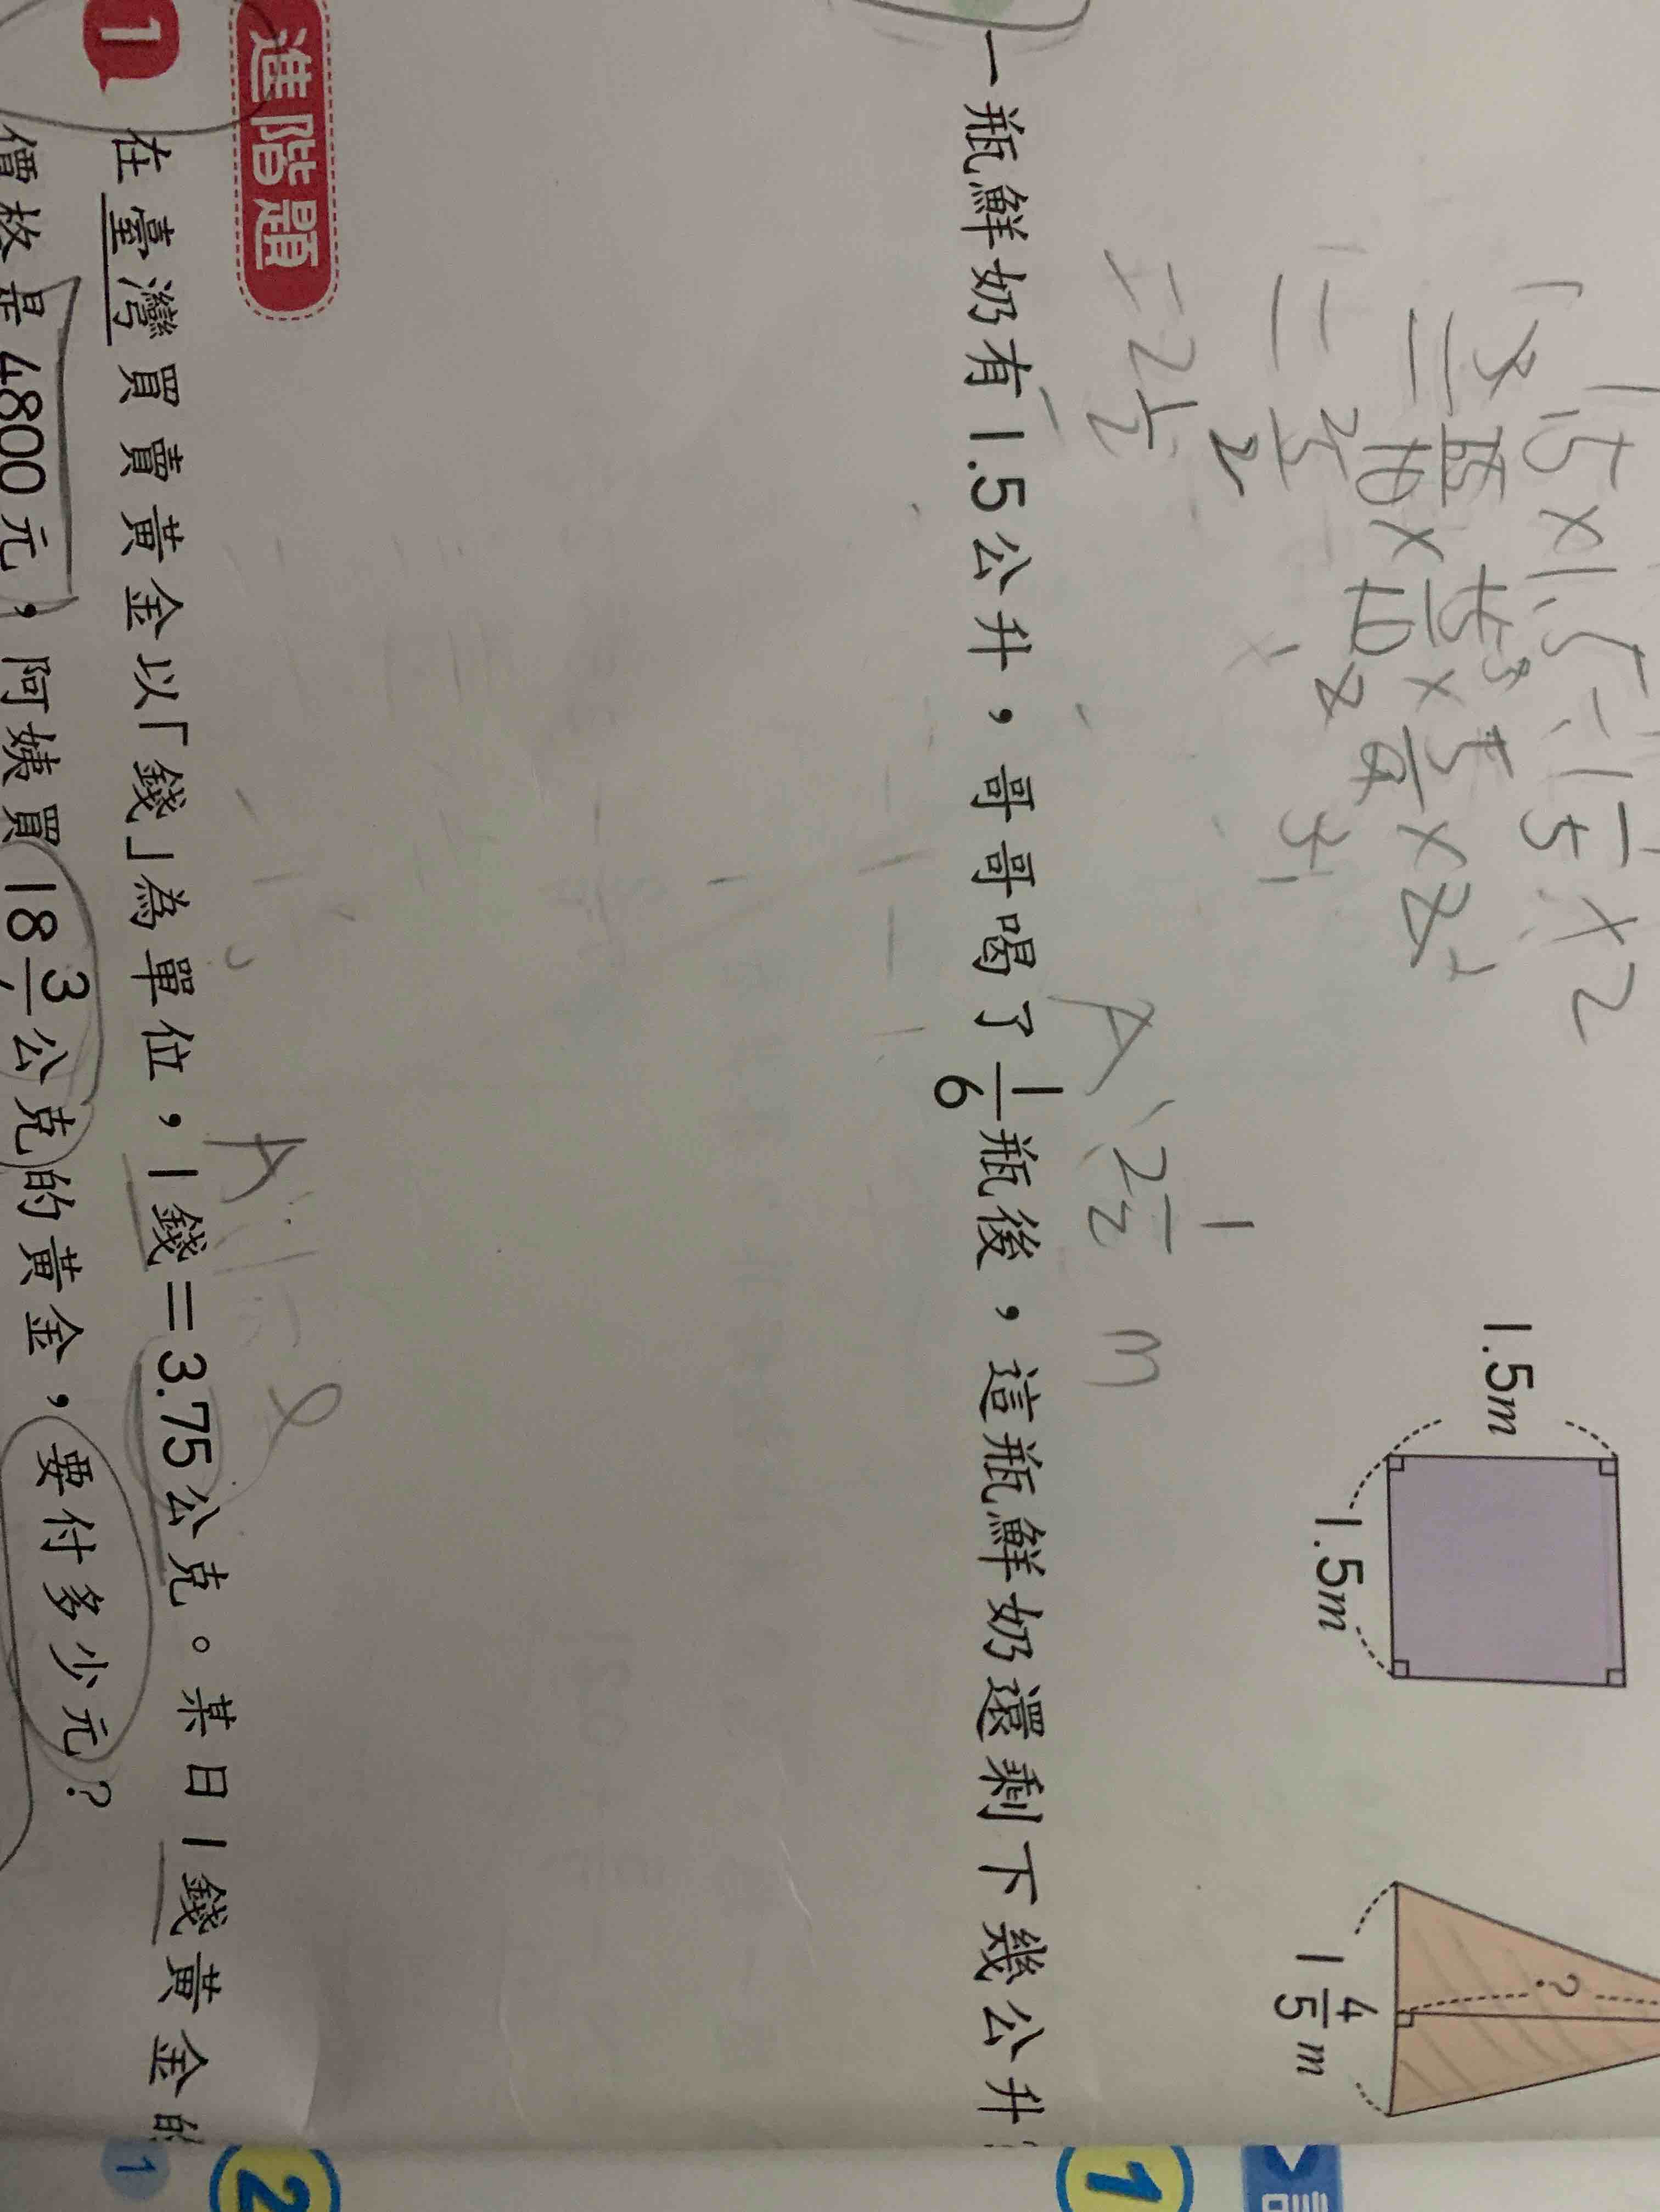 1.5×1.5÷1 4/5×2
= 15/10 × 15/10 × 5/9 × 2
= 5/2
= 2 1/2
A: 2 1/2 m
1.5m
1.5m
?
1 4/5 m
一瓶鮮奶有1.5公升，哥哥喝了1/6瓶後，這瓶鮮奶還剩下幾公升
進階題
1 在臺灣買賣黃金以「錢」為單位，1錢＝3.75公克。某日1錢黃金的
價格是4800元，阿姨買18 3/ 公克的黃金，要付多少元？
1
2
1